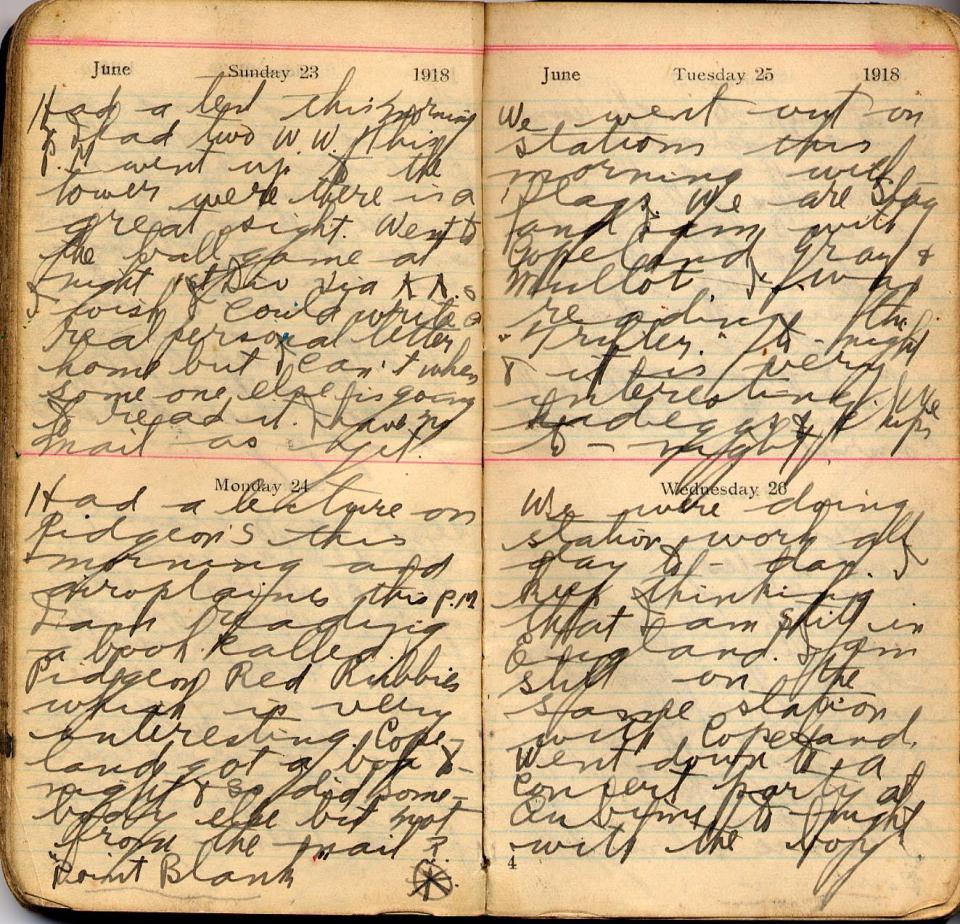 June Sunday 23 1918
Had a test this morning
& had two W.W. this
P.M. went up to the
tower were there is a
great sight. Went to
the ball game at
night 1st Div via A A s
I wish I could write a
real personal letter
home but I can't when
some one else is going
to read it. I have no
mail as yet.
Monday 24
Had a lecture on
Pidgeon's this
morning and
airoplaines this P.M.
I am reading
a book called
Pidgeon Red Rubbies
which is very
interesting. Cope-
land got a box to-
night & so did some-
body else but not
from the mail?
"Point Blank
June Tuesday 25 1918
We went out on
stations this
morning with
flags. We are stag
and I am with
Copeland Gray &
Mullot. I was
reading the
"Trifler." to-night
& it is very
interesting. We
had eggs & chips
to-night
Wednesday 26
We were doing
station work all
day to-day. I
keep thinking
that I am still in
England. I am
still on the
same station
with Copeland.
Went down to a
Concert party at
to-night
with the boys
4